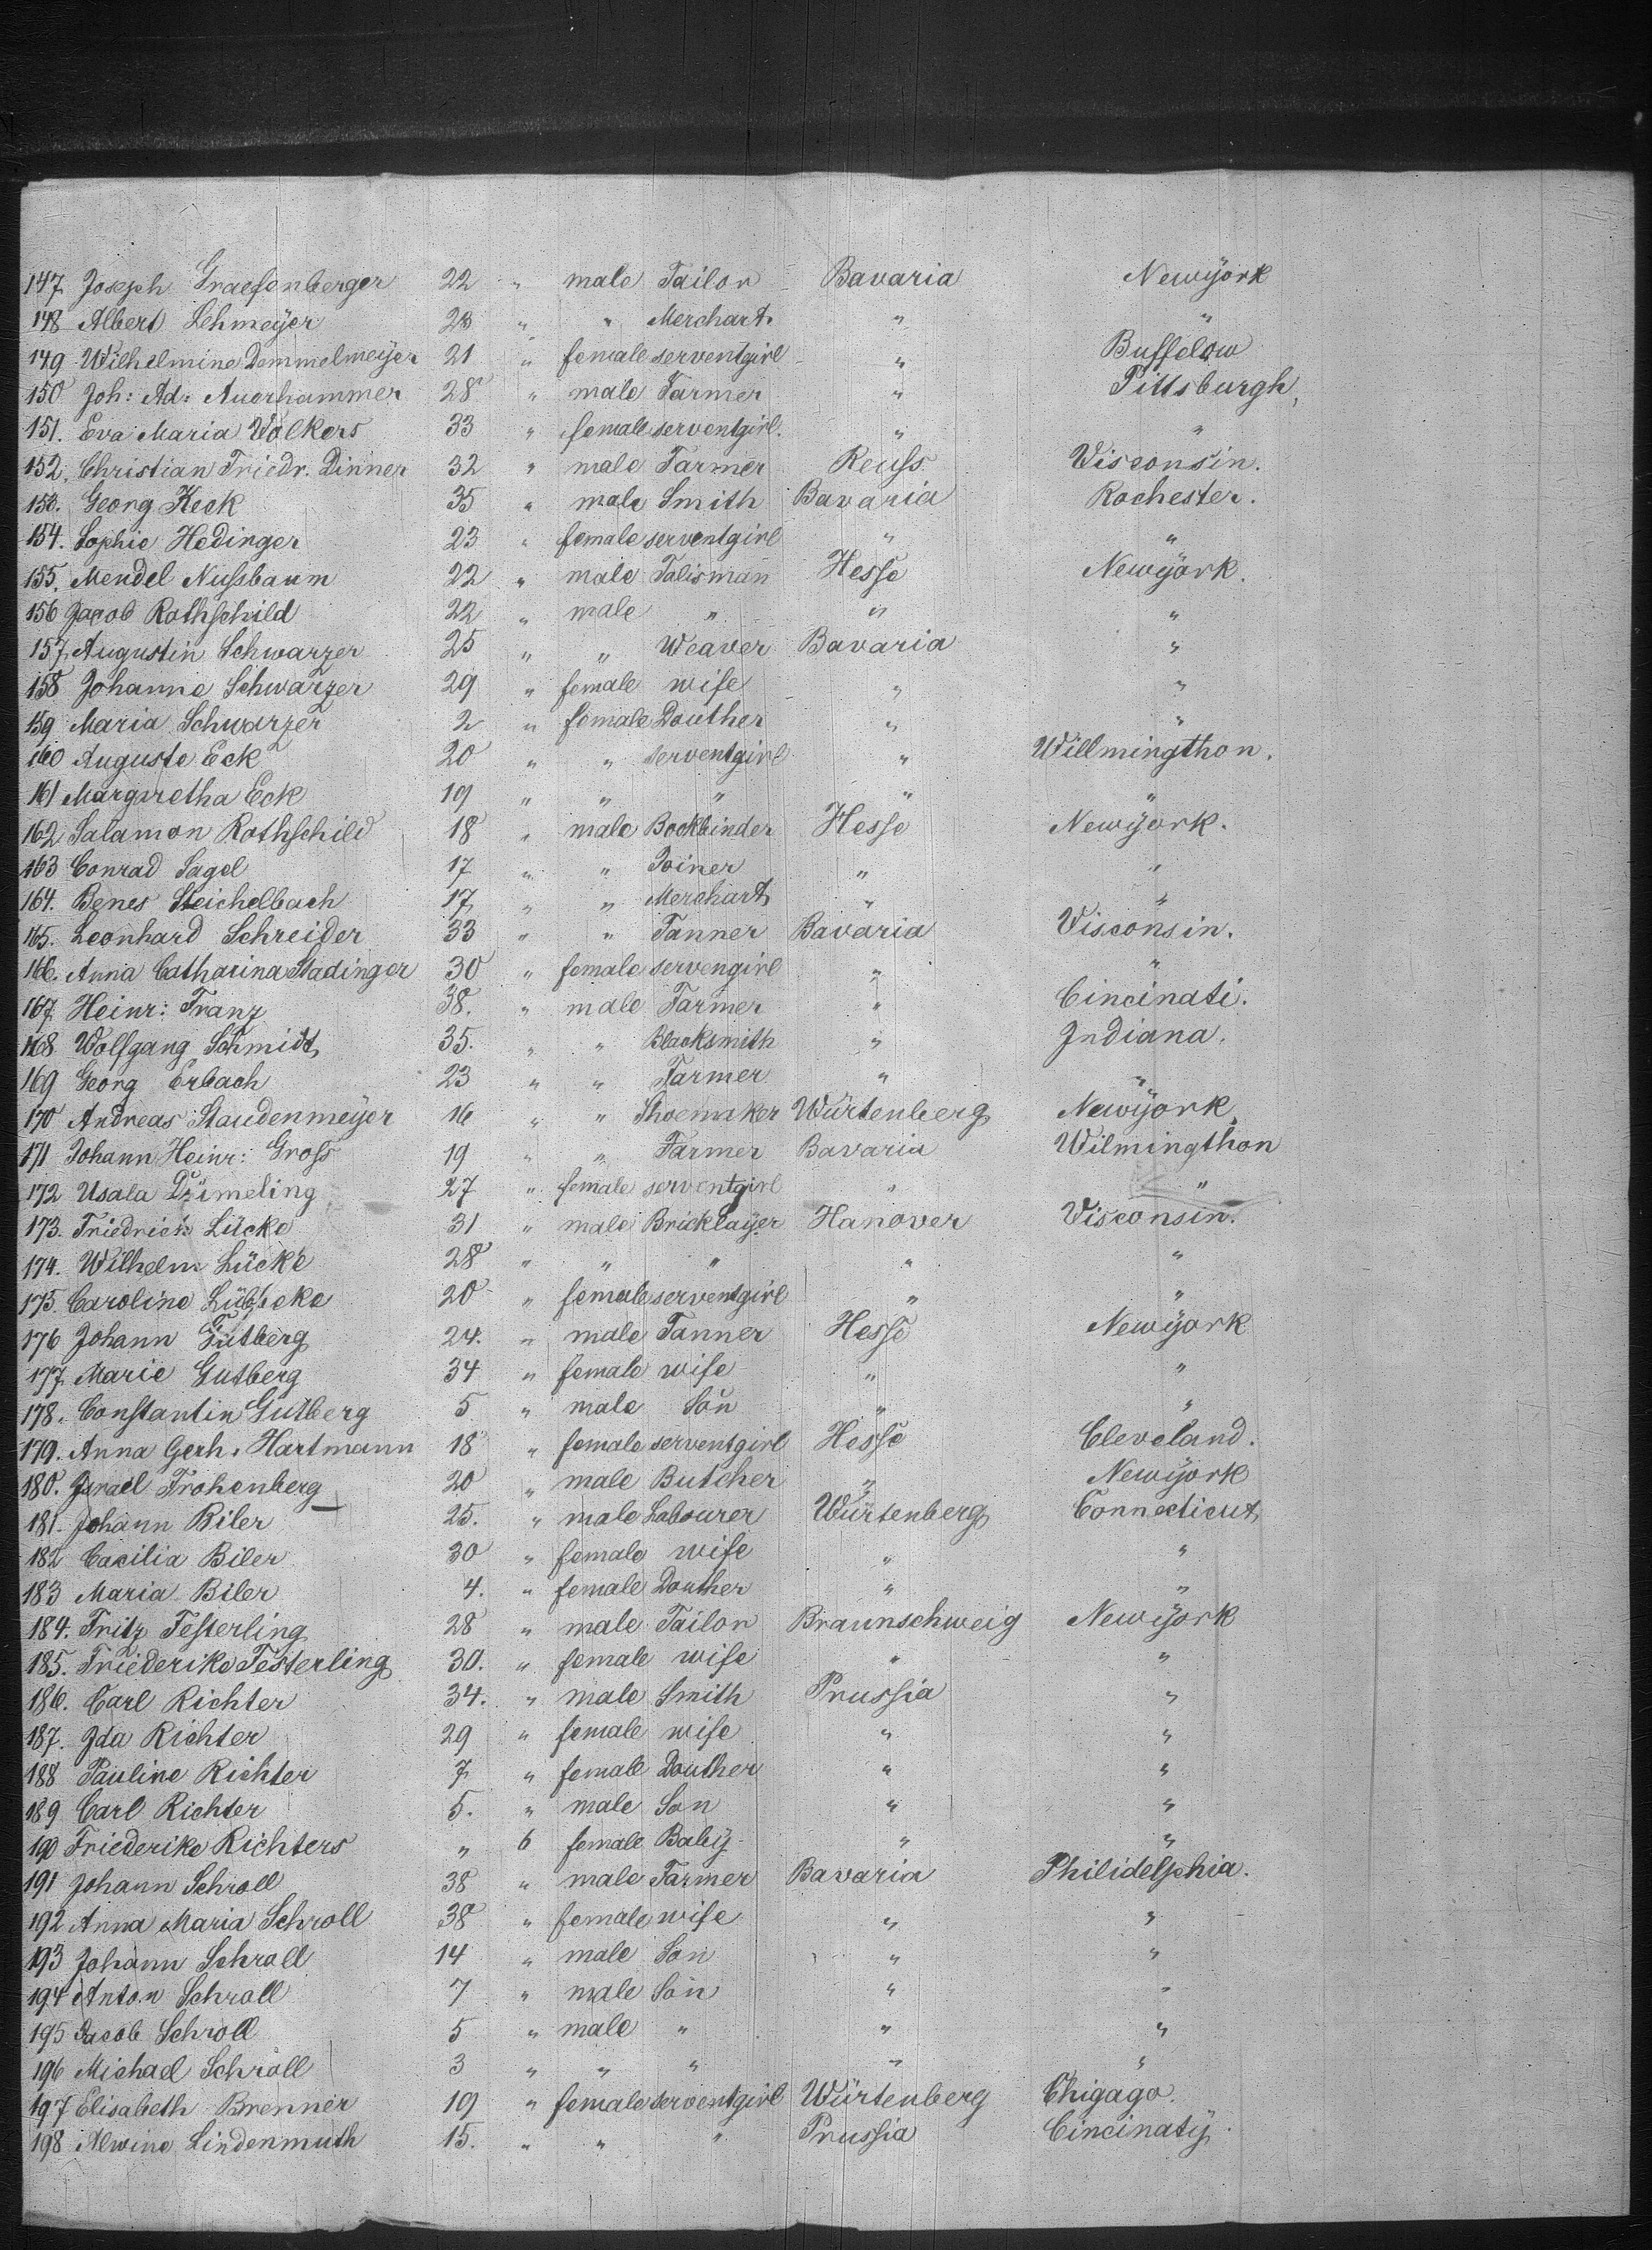 147 Joseph Graefenberger 22 " male Tailor Bavaria Newyork
148 Albert Lehmeyer 23 " " Merchart. " "
149 Wilhelmine Demmelmeyer 21 " female serventgirl " Buffelow
150 Joh: Ad: Auerhammer 28 " male Farmer " Pittsburgh,
151. Eva Maria Völkers 33 " female serventgirl. " "
152. Christian Friedr. Dinner 32 " male Farmer Reuss. Visconsin.
153. Georg Keck 35 " male Smith Bavaria Rochester.
154. Sophie Hedinger 23 " female serventgirl " "
155. Mendel Nussbaum 22 " male Talisman Hesse Newyork.
156 Jacob Rothschild 22 " male " " "
157. Augustin Schwarzer 25 " " Weaver Bavaria "
158 Johanne Schwarzer 29 " female wife " "
159 Maria Schwarzer 2 " female Douther " "
160 Auguste Eck 20 " " serventgirl " Willmingthon.
161 Margaretha Eck 19 " " " " "
162 Salamon Rothschild 18 " male Bockbinder Hesse Newyork.
163 Conrad Sagel 17 " " Joiner " "
164. Benes Steichelbach 17 " " Merchart " "
165. Leonhard Schreider 33 " " Tanner Bavaria Visconsin.
166. Anna Catharina Stadinger 30 " female servengirl " "
167. Heinr: Franz 38. " male Farmer " Cincinati.
168 Wolfgang Schmidt 35. " " Blacksmith " Indiana.
169 Georg Erbach 23 " " Farmer " "
170 Andreas Staudenmeyer 16 " " Shoemaker Würtenberg Newyork
171 Johann Heinr: Gross 19 " " Farmer Bavaria Wilmingthon
172 Usala Dzimeling 27 " female serventgirl " "
173. Friedrich Lücke 31 " male Bricklayer Hanover Visconsin.
174. Wilhelm Lücke 28 " " " " "
175. Caroline Lübbeke 20 " female serventgirl " "
176 Johann Gutberg 24. " male Tanner Hesse Newyork
177. Marie Gutberg 34 " female wife " "
178. Constantin Gutberg 5 " male Son " "
179. Anna Gerh. Hartmann 18 " female serventgirl Hesse Cleveland.
180. Israel Frohenberg 20 " male Butcher " Newyork
181. Johann Biler 25. " male Labourer Würtenberg Connecticut,
182 Cacilia Biler 30 " female wife " "
183 Maria Biler 4. " female Douther " "
184. Fritz Festerling 28 " male Tailor Braunschweig Newyork
185. Friederike Festerling 30. " female wife " "
186. Carl Richter 34. " male Smith Prussia "
187. Ida Richter 29 " female wife " "
188 Pauline Richter 7 " female Douther " "
189 Carl Richter 5. " male Son " "
190 Friederike Richters " 6 female Baby " "
191 Johann Schroll 38 " male Farmer Bavaria Philidelphia.
192 Anna Maria Schroll 38 " female wife " "
193 Johann Schroll 14 " male Son " "
194 Anton Schroll 7 " male Son " "
195 Jacob Schroll 5 " male " " "
196 Michael Schroll 3 " " " " "
197 Elisabeth Brenner 19 " female serventgirl Würtenberg Chigago.
198 Alwine Lindenmuth 15. " " " Prussia Cincinaty.